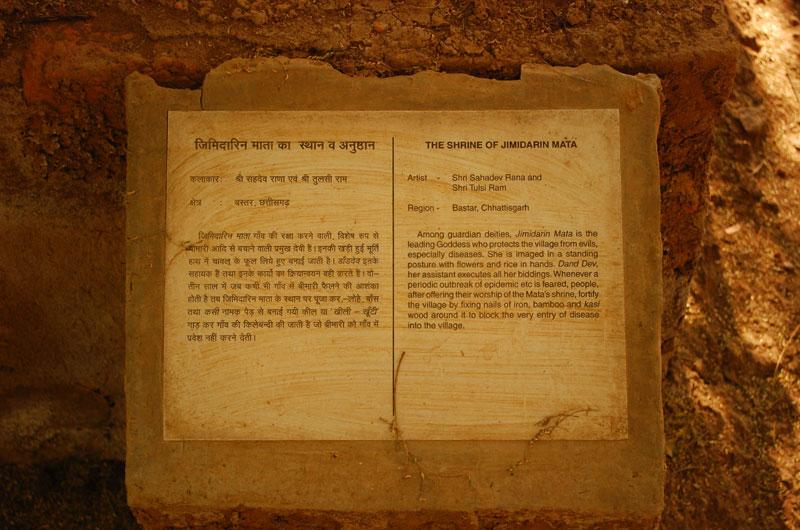 जिमिदारिन माता का स्थान व अनुष्ठान
कलाकार : श्री सहदेव राणा एवं श्री तुलसी राम
क्षेत्र : बस्तर, छत्तीसगढ़
जिमिदारिन माता गाँव की रक्षा करने वाली, विशेष रूप से
बीमारी आदि से बचाने वाली प्रमुख देवी हैं। इनकी खड़ी हुई मूर्ति
हाथ में चावल के फूल लिये हुए बनाई जाती है। डाँडदेव इनके
सहायक हैं तथा इनके कार्यों का क्रियान्वयन वही करते हैं। दो–
तीन साल में जब कभी भी गाँव में बीमारी फैलने की आशंका
होती है तब जिमिदारिन माता के स्थान पर पूजा कर, –लोहे, बाँस
तथा कसी नामक पेड़ से बनाई गयी कील या 'खीली – खूँटी'
गाड़ कर गाँव की किलेबन्दी की जाती है जो बीमारी को गाँव में
प्रवेश नहीं करने देती।
THE SHRINE OF JIMIDARIN MATA
Artist - Shri Sahadev Rana and
Shri Tulsi Ram
Region - Bastar, Chhattisgarh
Among guardian deities, Jimidarin Mata is the
leading Goddess who protects the village from evils,
especially diseases. She is imaged in a standing
posture with flowers and rice in hands. Dand Dev,
her assistant executes all her biddings. Whenever a
periodic outbreak of epidemic etc is feared, people,
after offering their worship of the Mata's shrine, fortify
the village by fixing nails of iron, bamboo and kasi
wood around it to block the very entry of disease
into the village.